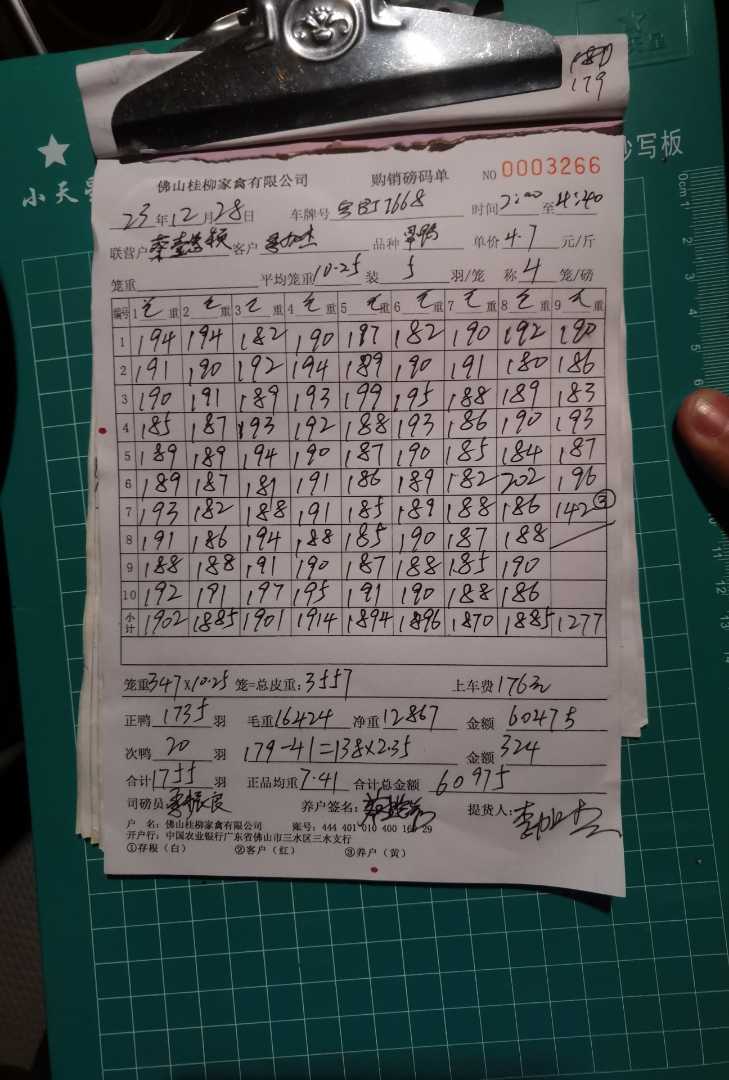 179
小天
抄写板
佛山桂柳家禽有限公司 购销磅码单 NO 0003266
23年12月28日 车牌号 7668 时间 2:00 至 4:40
联营户 客户 品种 单价 4.7 元/斤
笼重 平均笼重 10.25 装 5 羽/笼 称 4 笼/磅
编号 1 重 2 重 3 重 4 重 5 重 6 重 7 重 8 重 9 重
1 194 194 182 190 187 182 190 192 190
2 191 190 192 194 189 190 191 180 186
3 190 191 189 193 199 195 188 189 183
4 185 187 193 192 188 193 186 190 193
5 189 189 194 190 187 190 185 184 187
6 189 187 181 191 186 189 182 202 196
7 193 182 188 191 185 189 188 186 142 ③
8 191 186 194 188 185 190 187 188
9 188 188 191 190 187 188 185 190
10 192 191 197 195 191 190 188 186
小计 1902 1885 1901 1914 1894 1896 1870 1885 1277
笼重 347×10.25 笼=总皮重: 3557 上车费 176元
正鸭 1735 羽 毛重 16424 净重 12867 金额 60475
次鸭 20 羽 179-41=138×2.35 金额 324
合计 1755 羽 正品均重 7.41 合计总金额 60975
司磅员: 养户签名: 提货人:
户 名: 佛山桂柳家禽有限公司 账号: 444 401 010 400 16 29
开户行: 中国农业银行广东省佛山市三水区三水支行
①存根(白) ②客户(红) ③养户(黄)
0cm 1 2 3 4 5 6
10 11 12 13 14